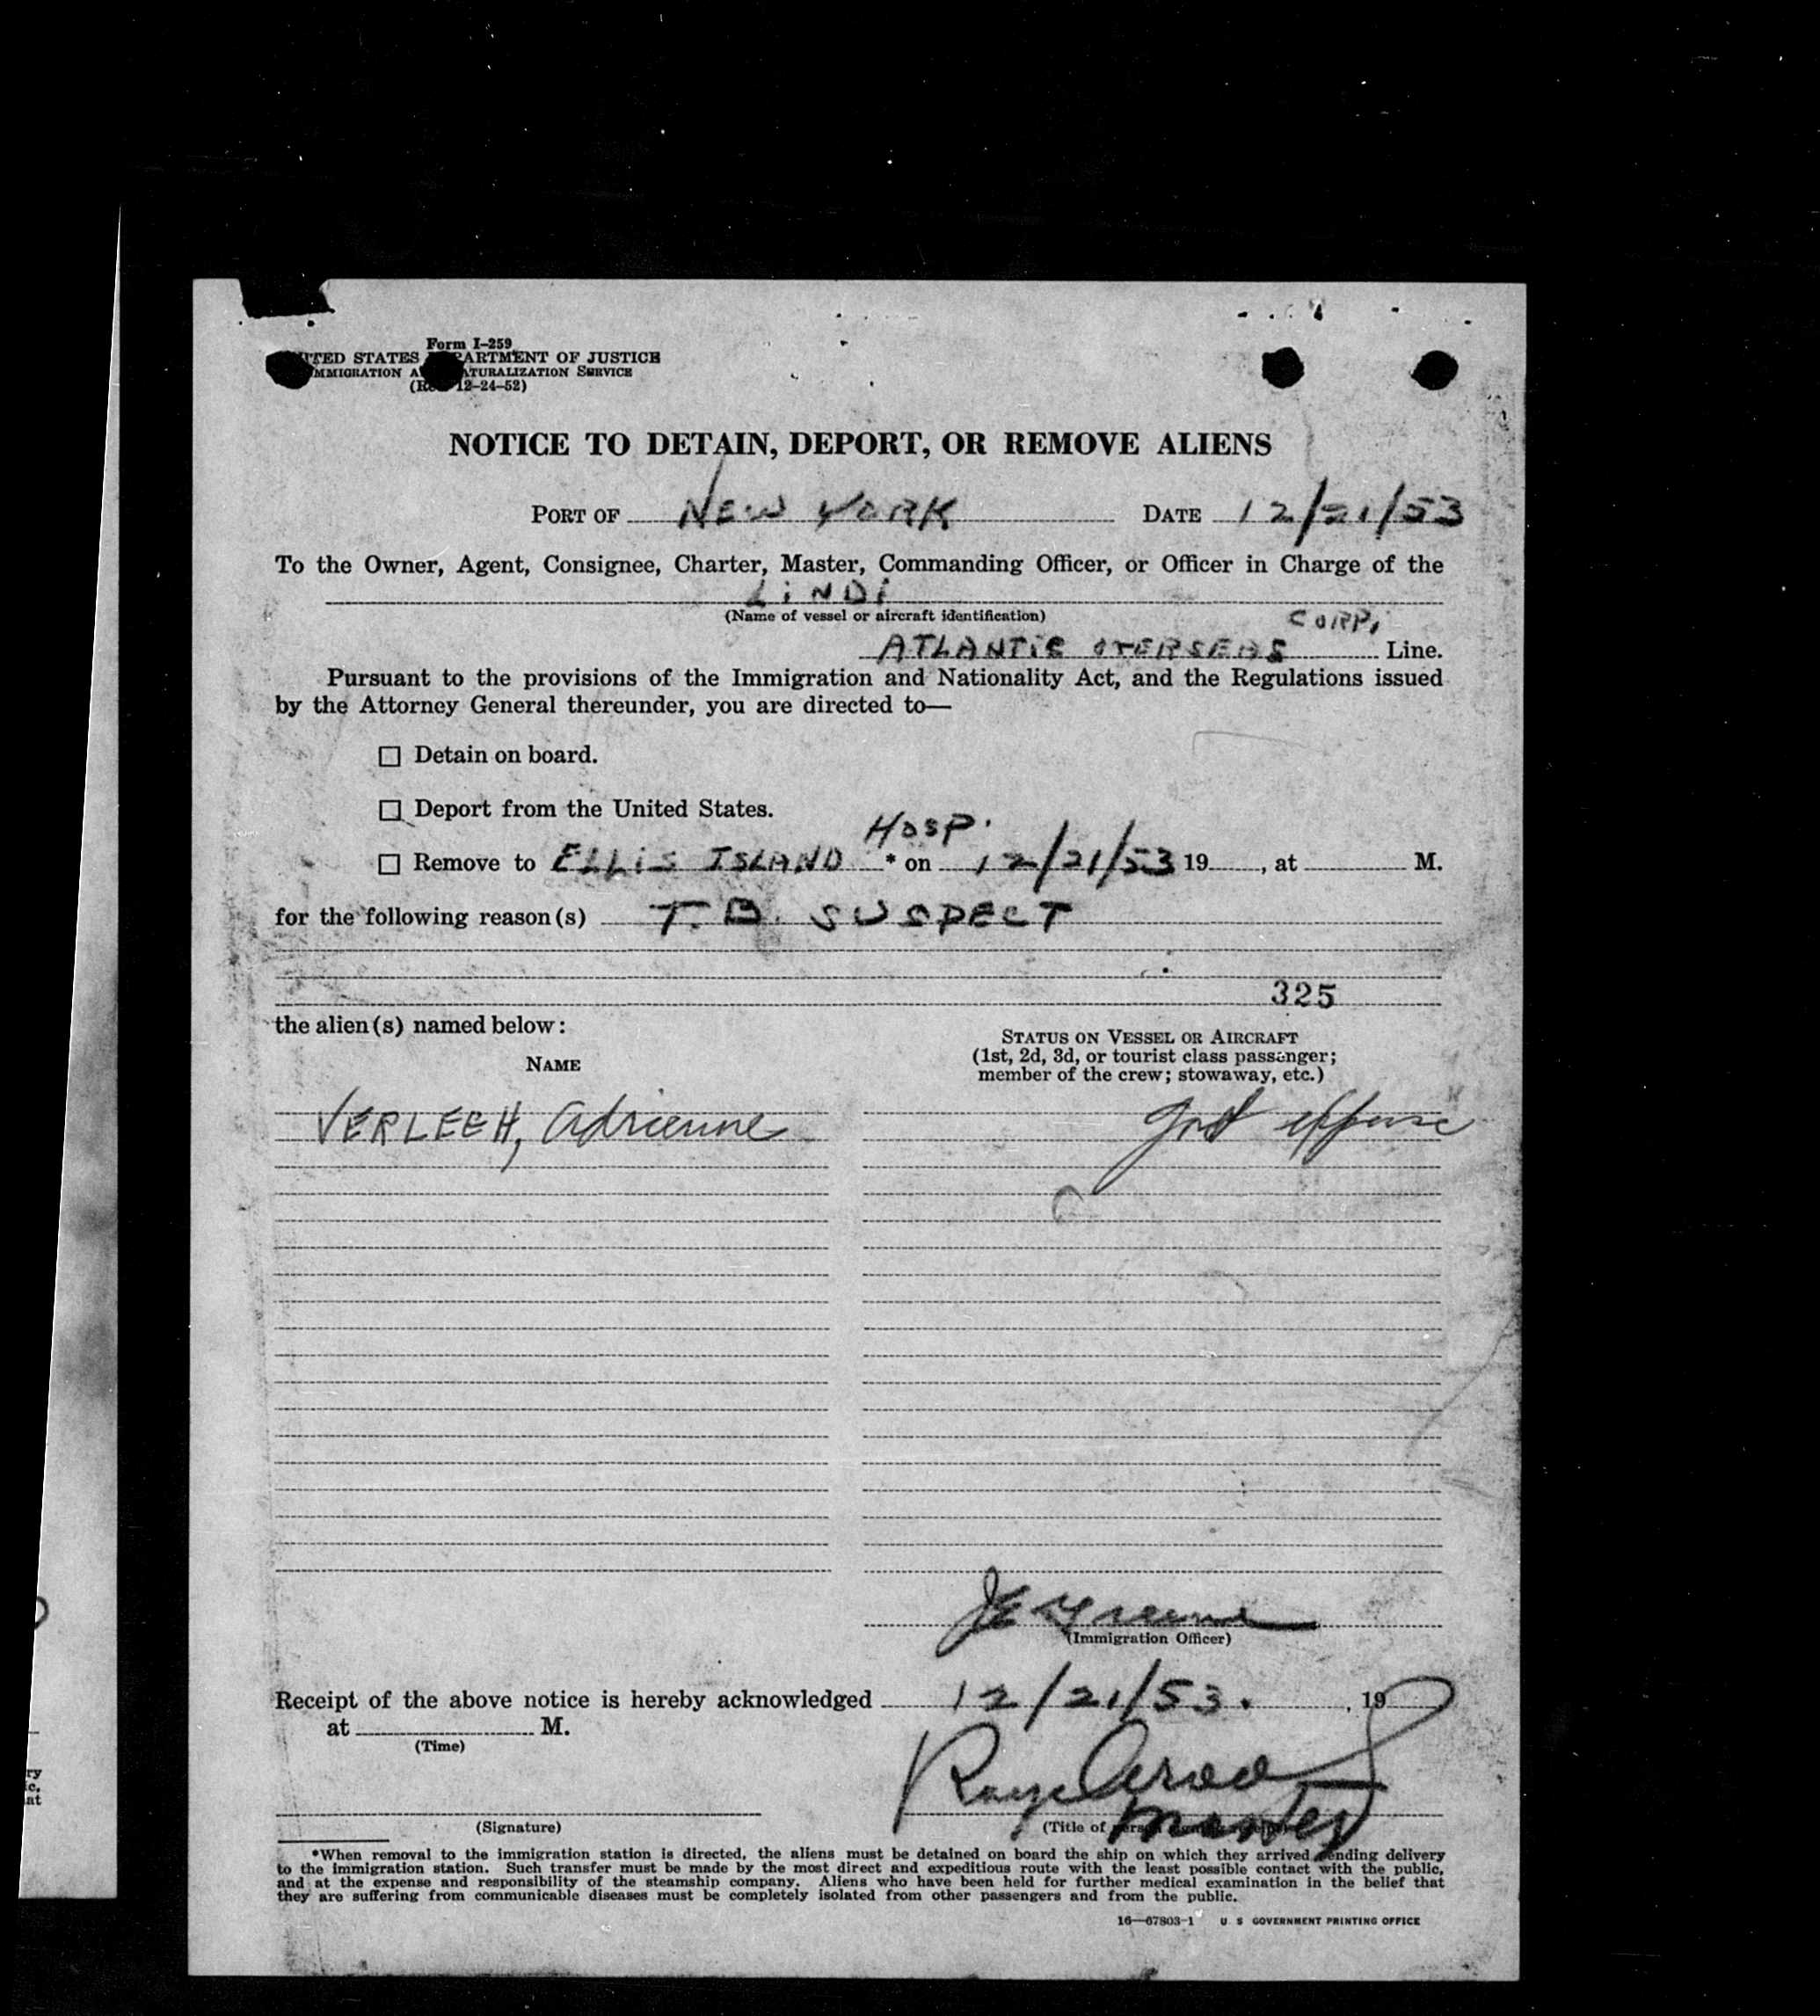 Form I-259
UNITED STATES DEPARTMENT OF JUSTICE
IMMIGRATION AND NATURALIZATION SERVICE
(Rev. 12-24-52)
NOTICE TO DETAIN, DEPORT, OR REMOVE ALIENS
PORT OF NEW YORK DATE 12/21/53
To the Owner, Agent, Consignee, Charter, Master, Commanding Officer, or Officer in Charge of the
LiNDi
(Name of vessel or aircraft identification)
CORP.
ATLANTiC OVERSEAS Line.
Pursuant to the provisions of the Immigration and Nationality Act, and the Regulations issued
by the Attorney General thereunder, you are directed to—
Detain on board.
Deport from the United States.
HOSP.
Remove to ELLIS ISLAND * on 12/21/53 19 , at M.
for the following reason(s) T.B. SUSPECT
325
the alien(s) named below:
NAME
STATUS ON VESSEL OR AIRCRAFT
(1st, 2d, 3d, or tourist class passenger;
member of the crew; stowaway, etc.)
VERLEEH, Adrienne
(Immigration Officer)
Receipt of the above notice is hereby acknowledged 12/21/53. , 19
at M.
(Time)
Master
(Signature)
(Title of
*When removal to the immigration station is directed, the aliens must be detained on board the ship on which they arrived pending delivery
to the immigration station. Such transfer must be made by the most direct and expeditious route with the least possible contact with the public,
and at the expense and responsibility of the steamship company. Aliens who have been held for further medical examination in the belief that
they are suffering from communicable diseases must be completely isolated from other passengers and from the public.
16—67803-1 U. S GOVERNMENT PRINTING OFFICE